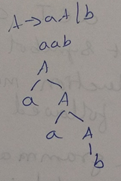 A → aA | b
aab
A
a A
a A
b